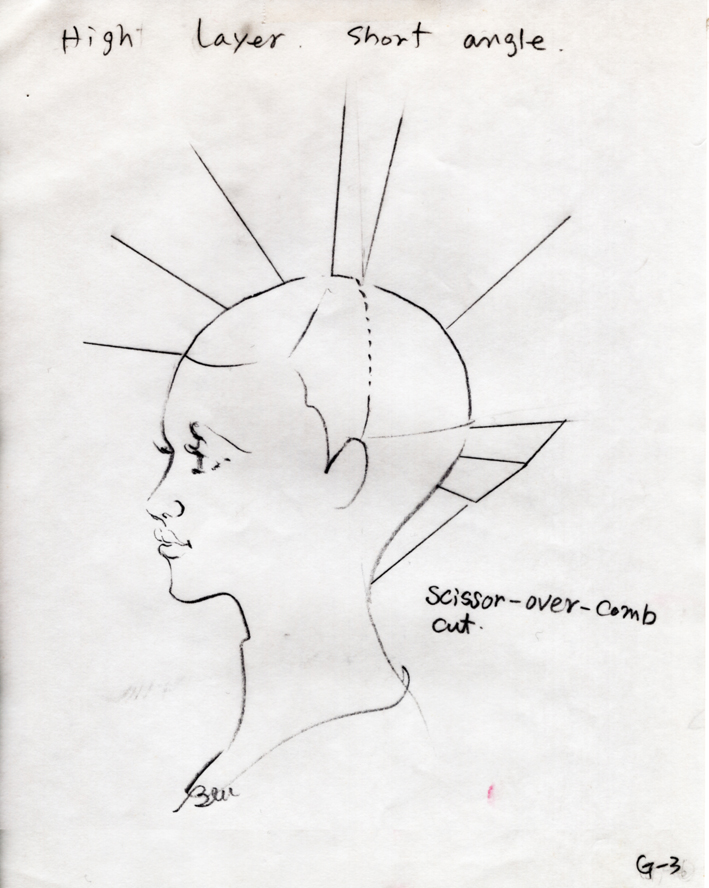 High Layer. Short angle.
Scissor-over-comb
cut.
G-3